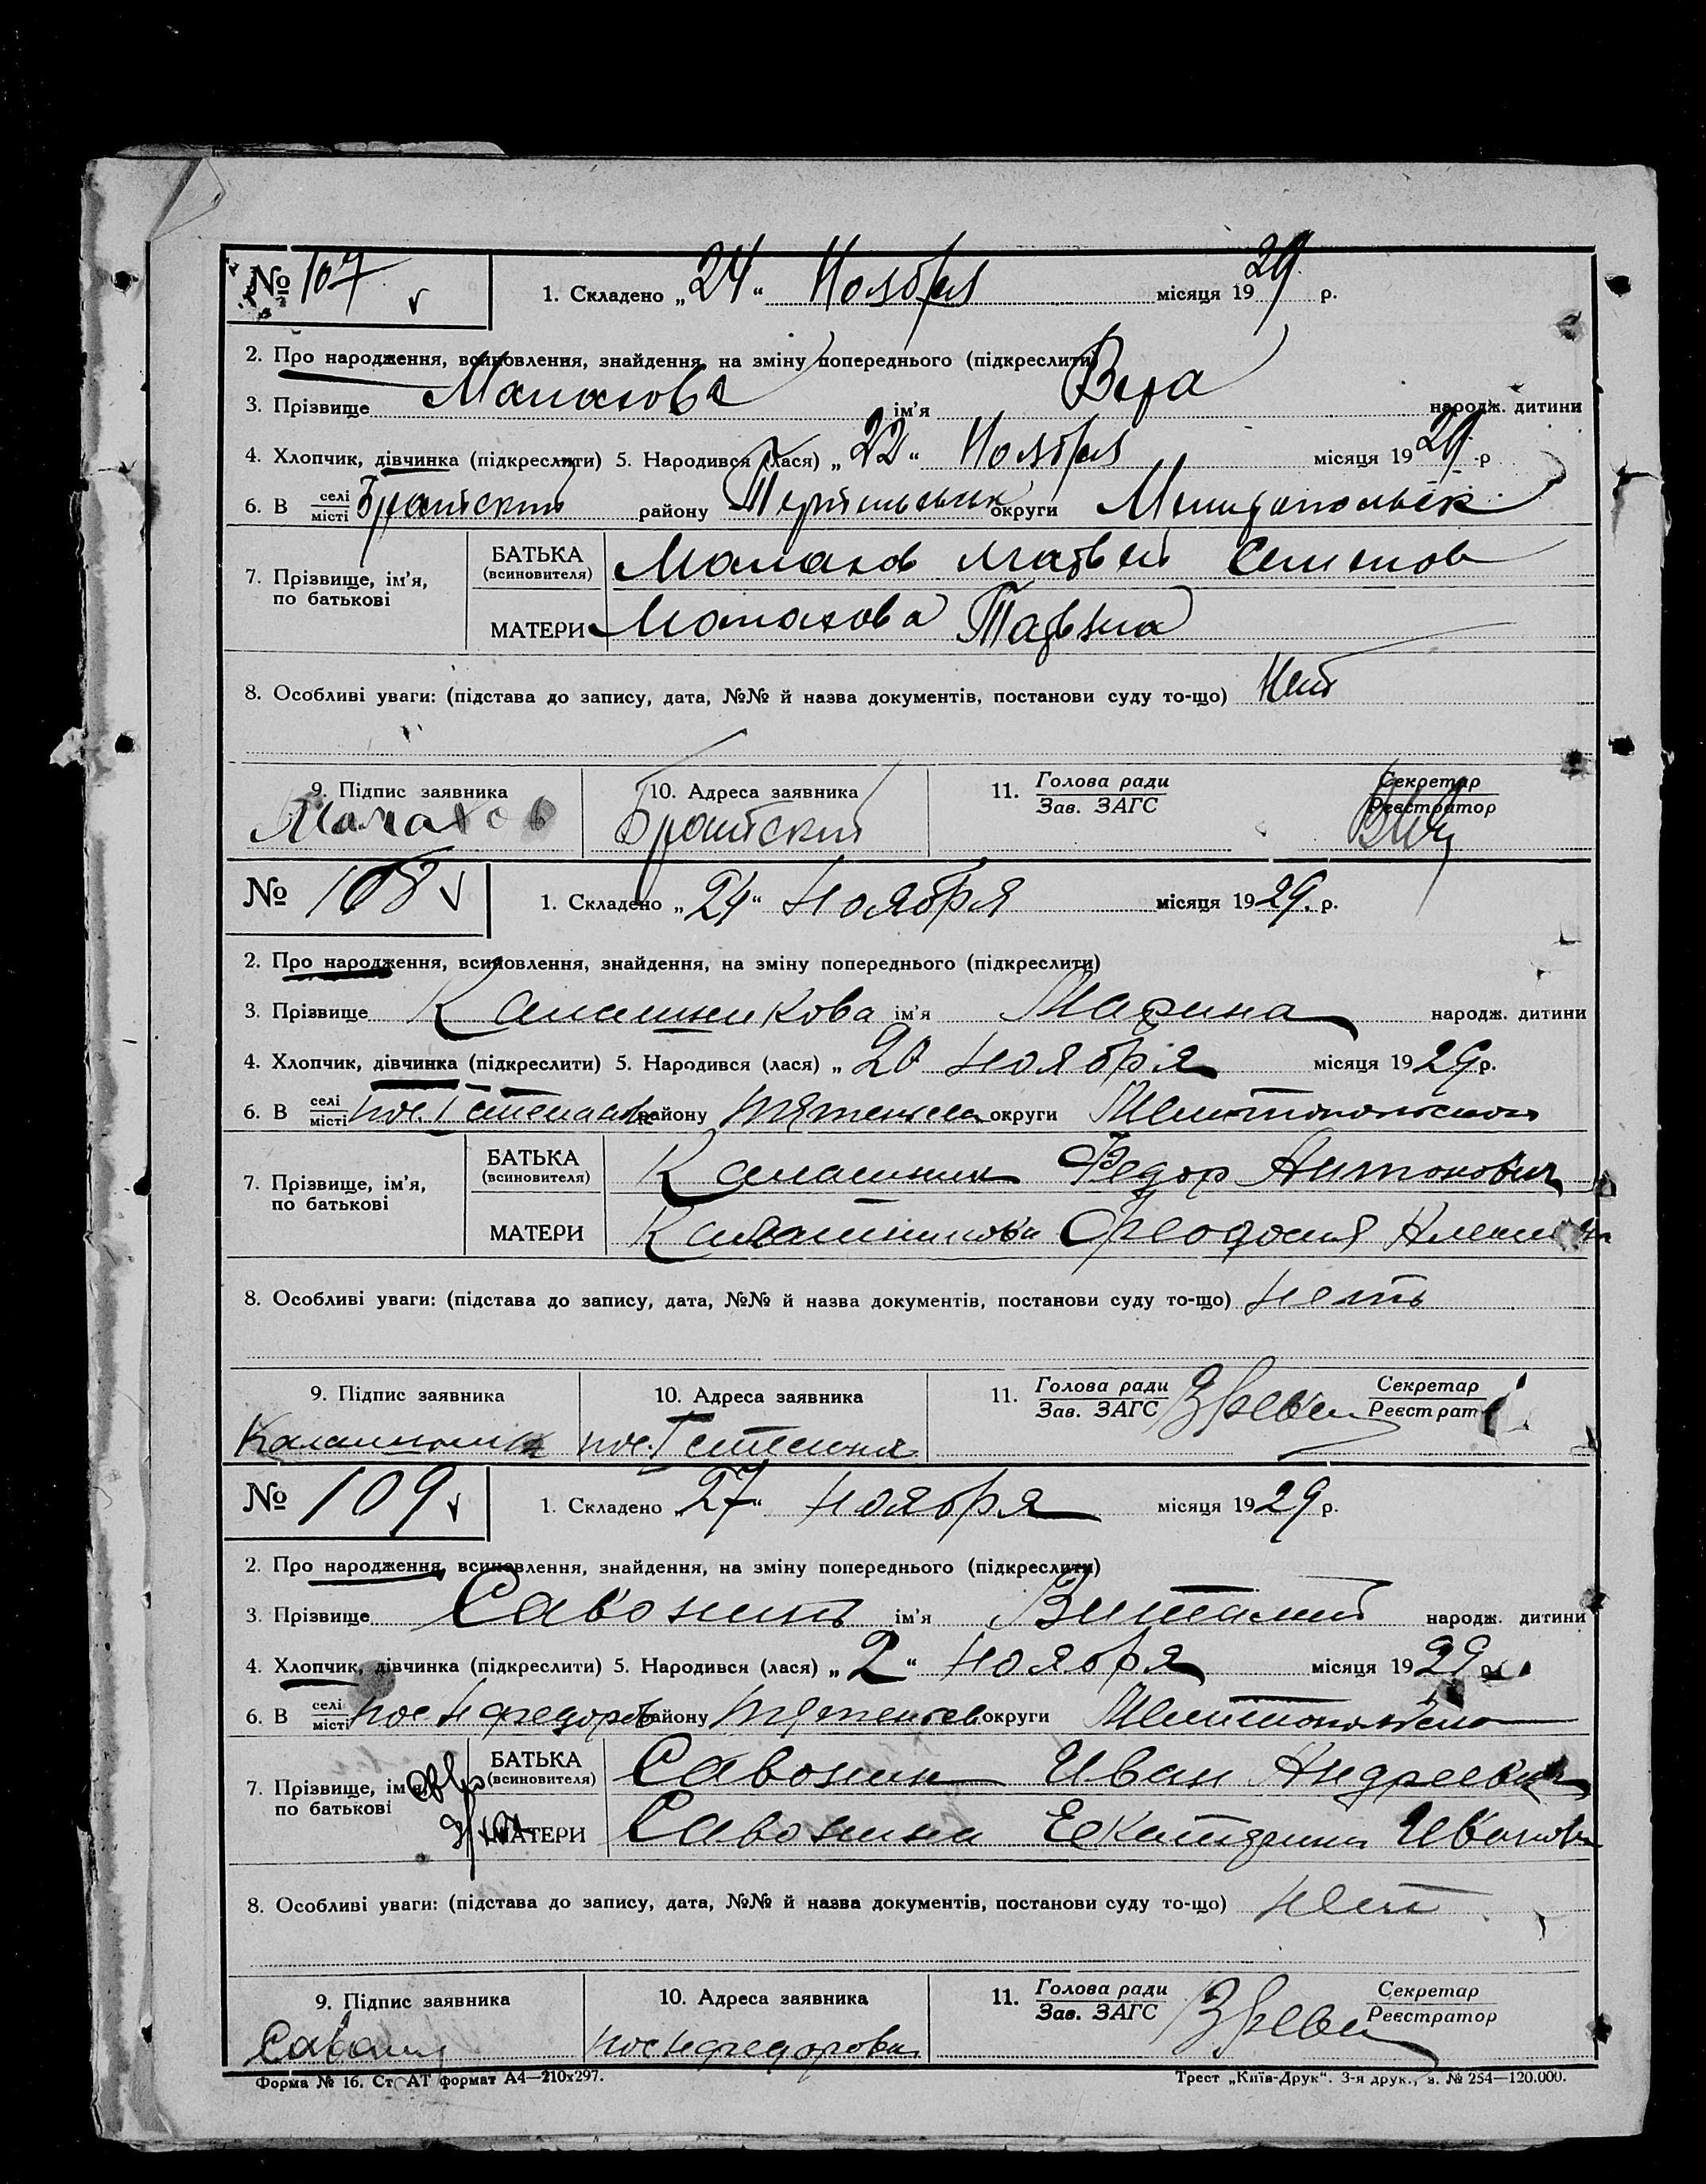 № 107 1. Складено „24“ Ноября місяця 1929 р.
2. Про народження, всиновлення, знайдення, на зміну попереднього (підкреслити)
3. Прізвище Малахова ім'я Вера народж. дитини
4. Хлопчик, дівчинка (підкреслити) 5. Народився (лася) „22“ Ноября місяця 1929 р
6. В селі місті району округи
7. Прізвище, ім'я, по батькові
БАТЬКА (всиновителя) Малахов Матвей
МАТЕРИ Малахова
8. Особливі уваги: (підстава до запису, дата, №№ й назва документів, постанови суду то-що) Нет
9. Підпис заявника 10. Адреса заявника 11. Голова ради Зав. ЗАГС Секретар Реєстратор
Малахов
№ 108 1. Складено „24“ Ноября місяця 1929. р.
2. Про народження, всиновлення, знайдення, на зміну попереднього (підкреслити)
3. Прізвище Калашникова ім'я Марина народж. дитини
4. Хлопчик, дівчинка (підкреслити) 5. Народився (лася) „20 ноября місяця 1929 р.
6. В селі місті пос. району округи
7. Прізвище, ім'я, по батькові
БАТЬКА (всиновителя) Калашник Федор Антонович
МАТЕРИ Калашникова Феодосия
8. Особливі уваги: (підстава до запису, дата, №№ й назва документів, постанови суду то-що) нетъ
9. Підпис заявника 10. Адреса заявника 11. Голова ради Зав. ЗАГС Секретар
Калашник пос.
№ 109 1. Складено „27“ ноября місяця 1929 р.
2. Про народження, всиновлення, знайдення, на зміну попереднього (підкреслити)
3. Прізвище Савонинъ ім'я Виталий народж. дитини
4. Хлопчик, дівчинка (підкреслити) 5. Народився (лася) „2“ ноября місяця 1929 р.
6. В селі місті пос Н федоровк району округи
7. Прізвище, ім'я, по батькові
БАТЬКА (всиновителя) Савонин Иван Андреевич
МАТЕРИ Савонина Екатерина Иванов
8. Особливі уваги: (підстава до запису, дата, №№ й назва документів, постанови суду то-що) нет
9. Підпис заявника 10. Адреса заявника 11. Голова ради Зав. ЗАГС Секретар Реєстратор
пос Н федоровка
Форма № 16. Ст. АТ формат А4—210х297. Трест „Київ-Друк“. 3-я друк., з. № 254—120.000.